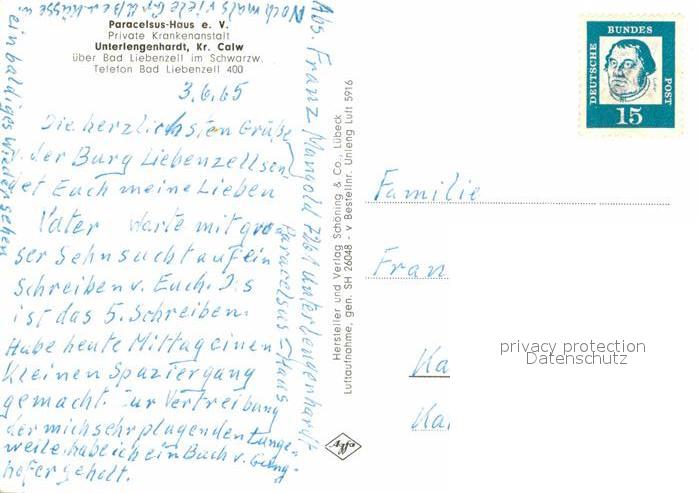 Paracelsus-Haus e. V.
Private Krankenanstalt
Unterlengenhardt, Kr. Calw
über Bad Liebenzell im Schwarzw.
Telefon Bad Liebenzell 400
3.6.65
Die herzlichsten Grüße
v. der Burg Liebenzell sen
det Euch meine Lieben
Vater Warte mit gro
ser Sehnsucht auf ein
Schreiben v. Euch. Dis
ist das 5. Schreiben.
Habe heute Mittag einen
kleinen Spaziergang
gemacht. Zur Vertreibung
der mich sehr plagenden Lange-
weile habe ich ein Buch v. Gang-
hofer geholt.
Nochmals viele Grüße u. Küsse u.
ein baldiges Wiedersehen
Abs. Franz Mangold 7261 Unterlendenhardt
Paracelsus-Haus
Hersteller und Verlag Schöning & Co., Lübeck
Luftaufnahme, gen. SH 26048 - V Bestellnr. Unleng Luft 5916
DEUTSCHE BUNDES POST
15
Familie
Fran
Ka
Ka
privacy protection
Datenschutz